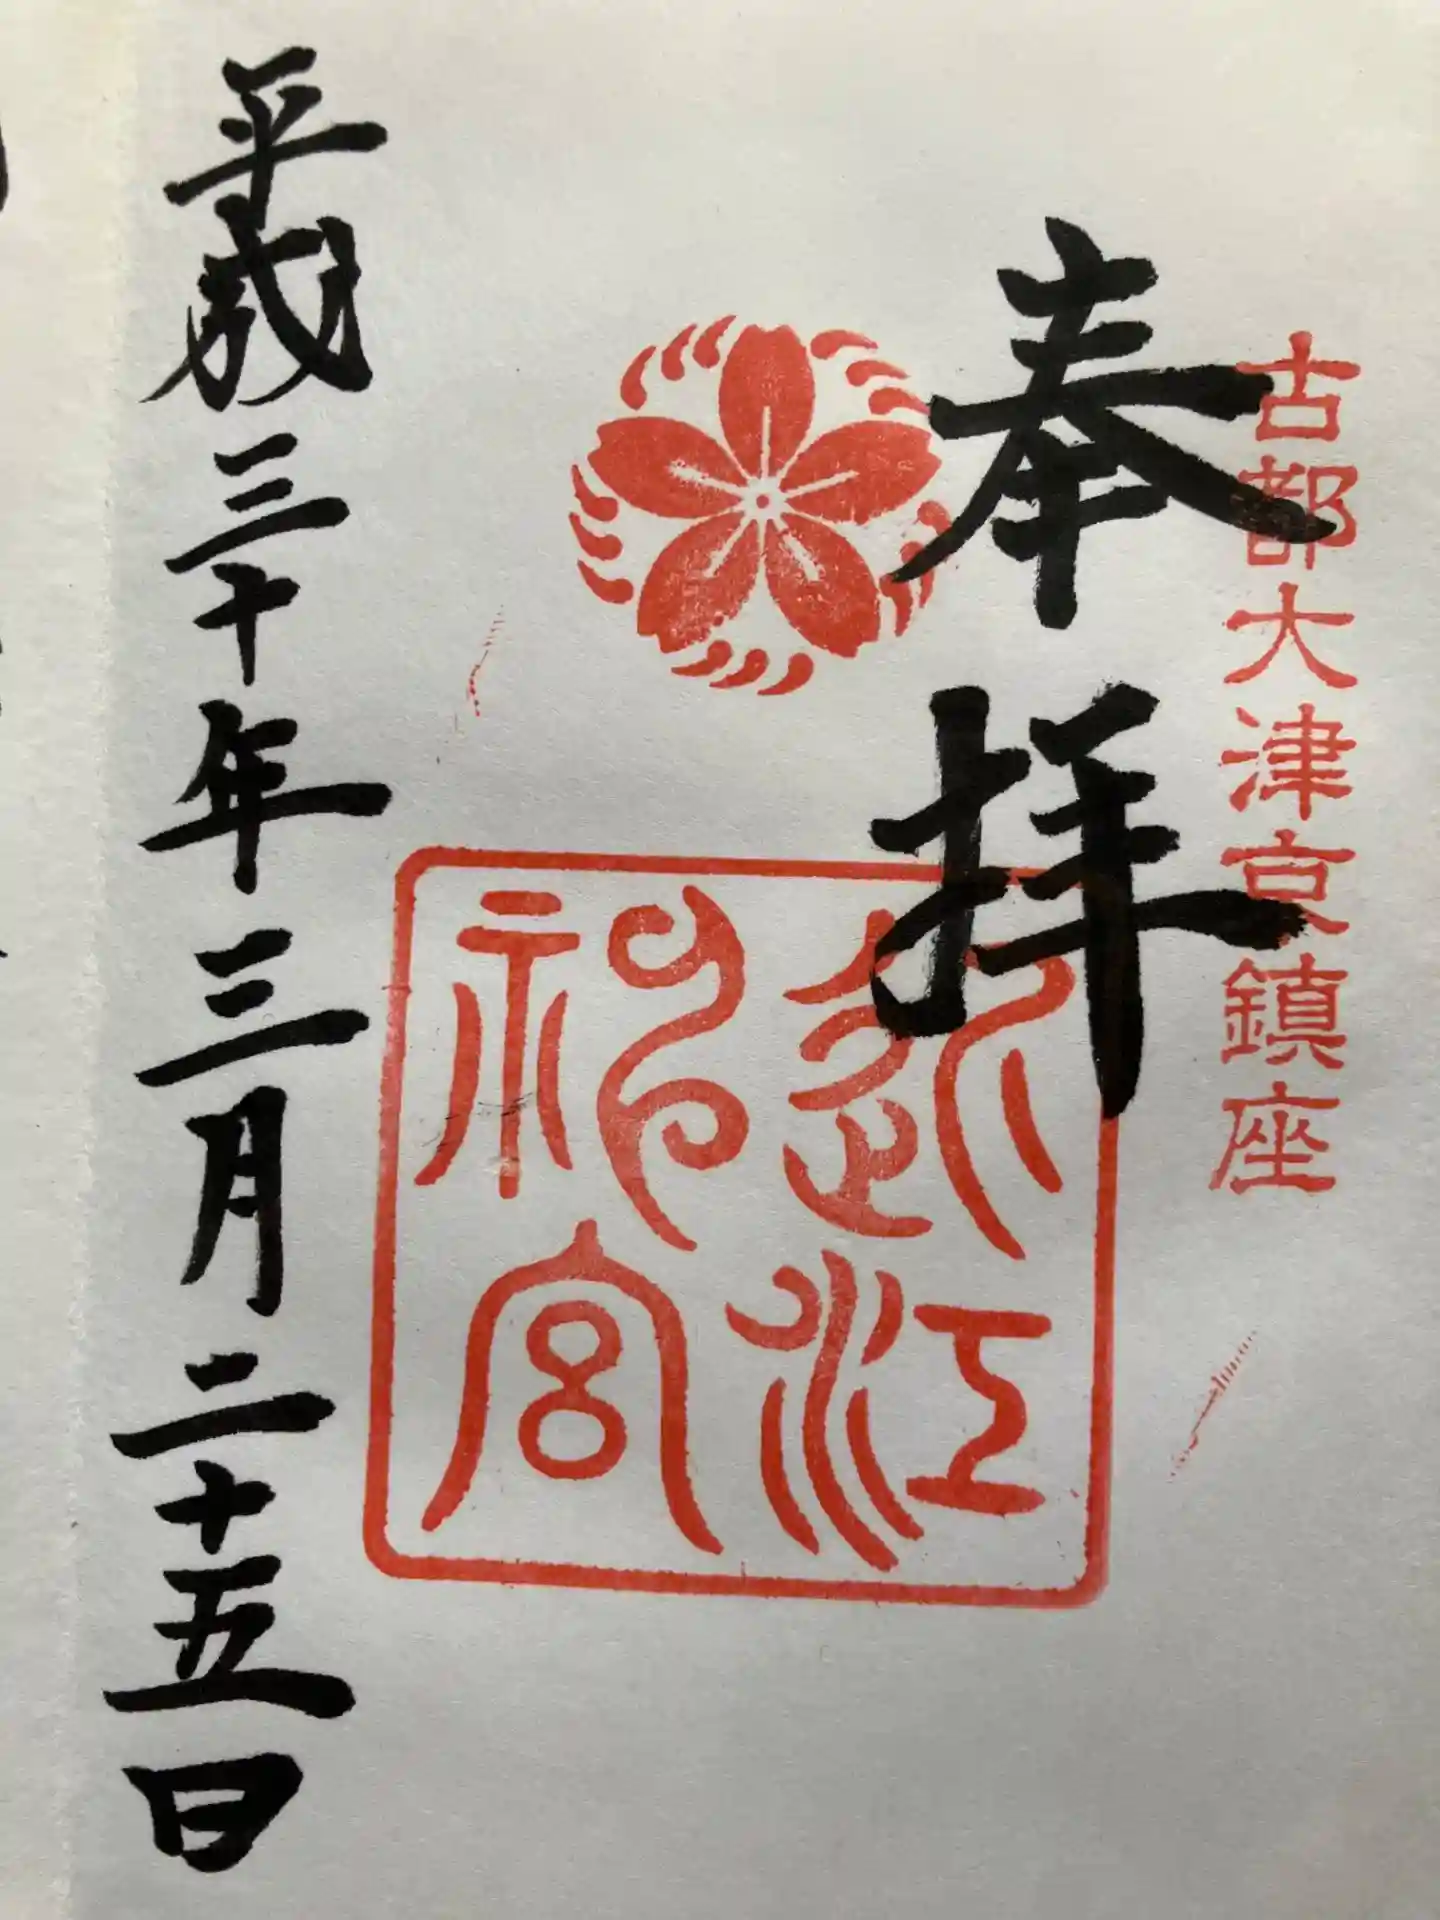 古都大津京鎮座
奉拝
近江
神宮
平成三十年三月二十五日